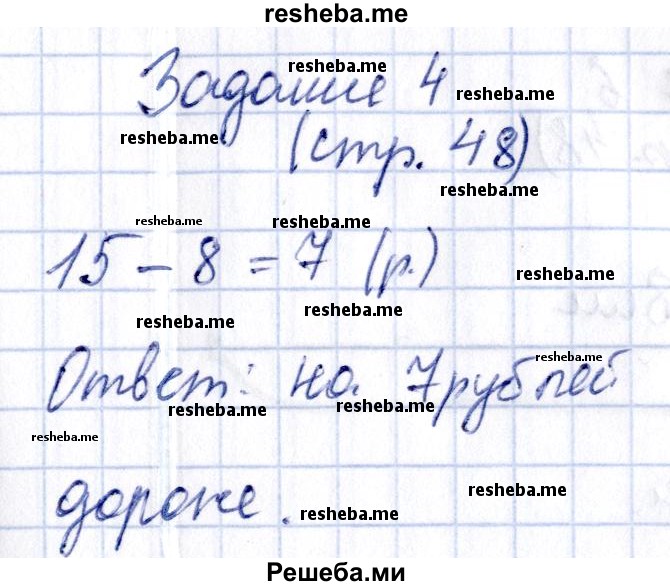 resheba.me
Задание 4
resheba.me
resheba.me
resheba.me
(стр. 48)
resheba.me
resheba.me
resheba.me
15 - 8 = 7 (р.)
resheba.me
resheba.me
resheba.me
Ответ: на 7 рублей
resheba.me
resheba.me
resheba.me
resheba.me
дороже.
resheba.me
resheba.me
Решеба.ми